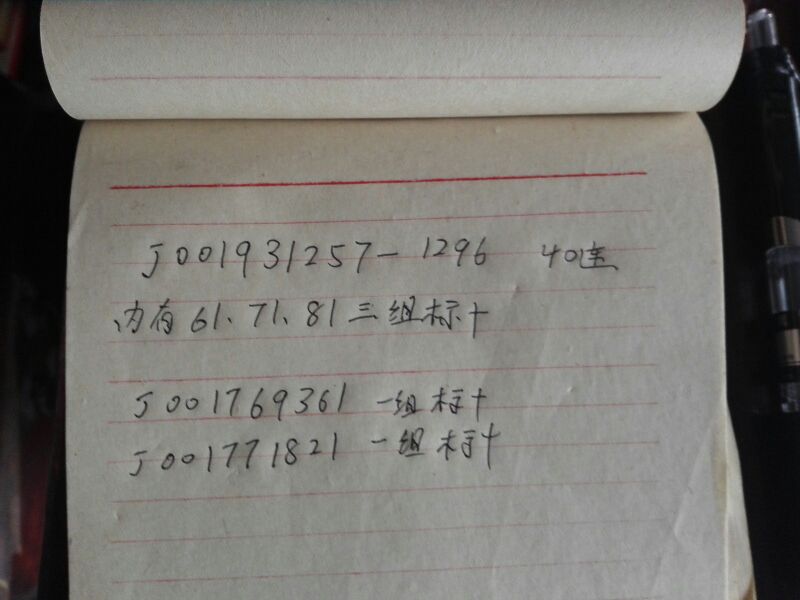 J001931257-1296 40连
内有61、71、81三组标十
J001769361 一组标十
J001771821 一组标十